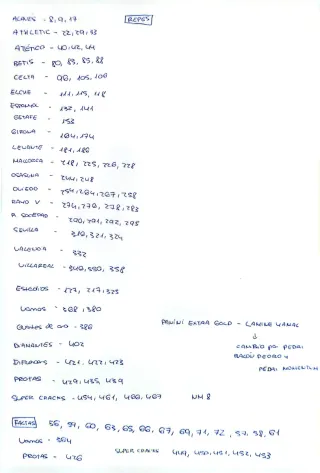 ALAVES - 8, 9, 17
REPES
ATHLETIC - 22, 29, 33
ATLÉTICO - 40, 42, 44
BETIS - 80, 83, 85, 88
CELTA - 98, 105, 106
ELCHE - 111, 115, 118
ESPANYOL - 132, 141
GETAFE - 153
GIRONA - 164, 174
LEVANTE - 181, 186
MALLORCA - 218, 225, 226, 228
OSASUNA - 244, 248
OVIEDO - 254, 264, 267, 258
RAYO V - 274, 276, 278, 283
R SOCIEDAD - 290, 291, 292, 298
SEVILLA - 316, 321, 324
VALENCIA - 332
VILLARREAL - 349, 350, 358
ESTADIOS - 177, 217, 325
VAMOS - 368, 380
GUANTES DE ORO - 386
PANINI EXTRA GOLD - LAMINE YAMAL
DIAMANTES - 402
CAMBIO POR PEDRI
BALÓN DE ORO
DIFUSORES - 421, 422, 423
PEDRI MOMENTUM
PROTAS - 429, 435, 439
SUPER CRACKS - 454, 461, 466, 467
NM 8
FALTAS 56, 59, 60, 63, 65, 66, 67, 69, 71, 72, 57, 58, 61
VAMOS - 364
SUPER CRACKS 449, 450, 451, 452, 453
PROTAS - 426